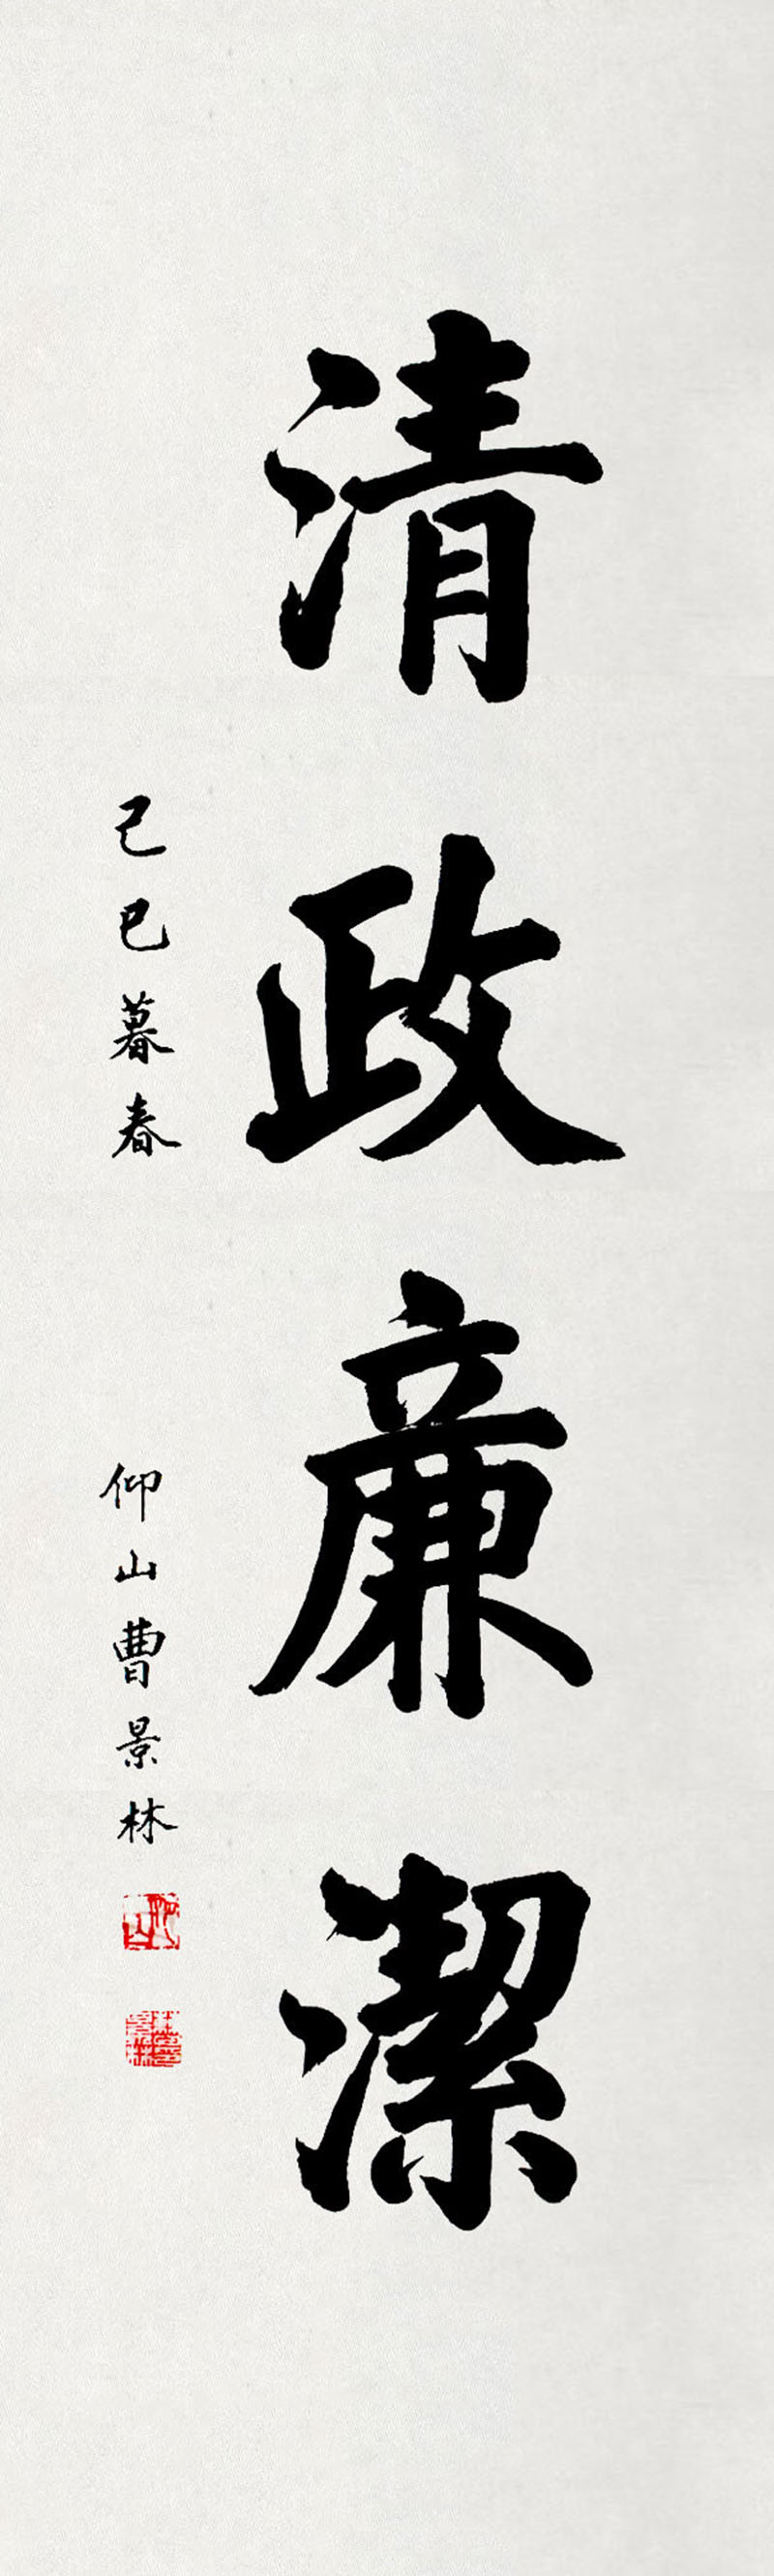 清政廉潔
己巳暮春
仰山曹景林